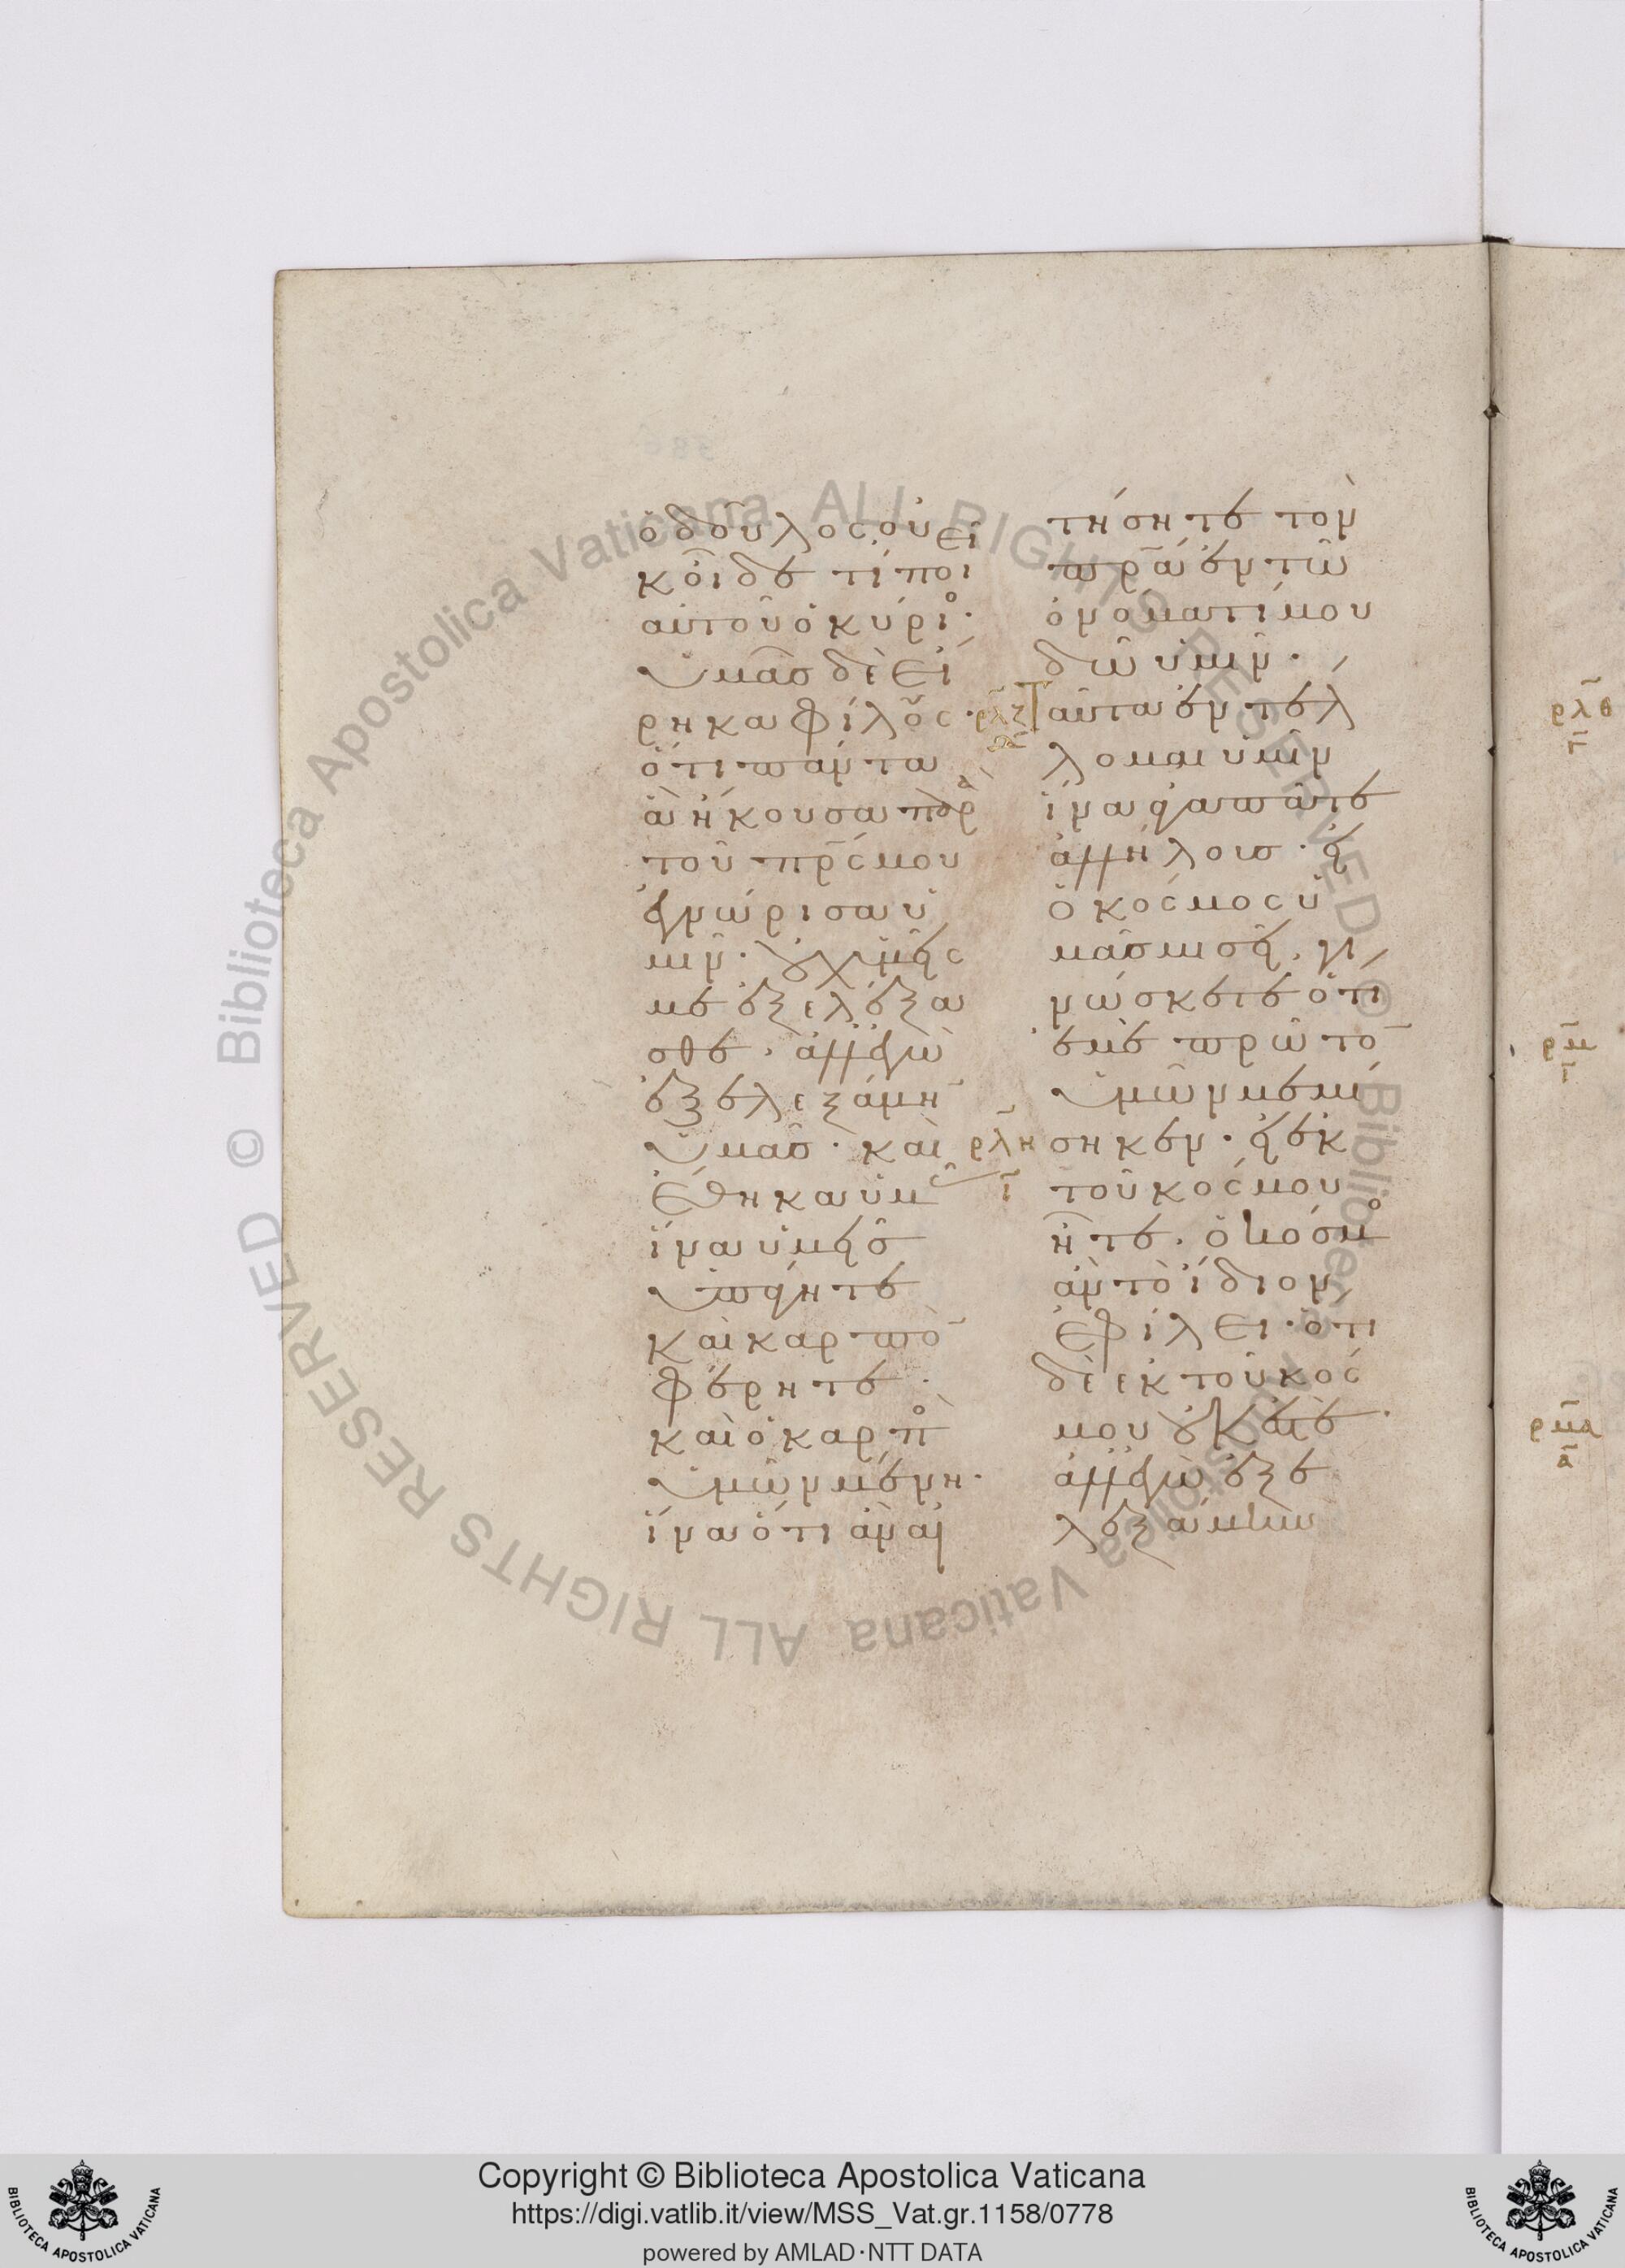 ὁ δοῦλος οὐ εἰ
κ οἶδε τί ποι
αὐτοῦ ὁ κύρι̊·
ὑμᾶσ δὲ εἴ
ρηκα φίλους·
ὅτι πάντα
ἃ ἤκουσα παρ
τοῦ πρ̅ς μου
ἐγνώρισα ὑ
μῖν· οὐχ ὑμεῖς
με ἐξελέξα
σθε· ἀλλ' ἐγὼ
ἐξελεξάμη̅
ὑμᾶσ· καὶ
ἔθηκα ὑμ
ἵνα ὑμεῖσ
ὑπάγητε
καὶ καρπὸ̅
φέρητε·
καὶ ὁ καρπ̊
ὑμῶν μένη·
ἵνα ὅτι ἂν αἰ
τήσητε τὸν
πρ̅α ἐν τῶ
ὀνόματί μου
δῶ ὑμῖν·
Ταῦτα ἐντέλ
λομαι ὑμῖν
ἵνα ἀγαπᾶτε
ἀλλήλουσ· εἰ
ὁ κόσμος ὑ
μᾶσ μισεῖ, γι
νώσκετε ὅτι
ἐμὲ πρῶτο̅
ὑμῶν μεμί
σηκεν· εἰ ἐκ
τοῦ κόσμου
ἦτε· ὁ κόσμ̊
ἂν τὸ ἴδιον
ἐφίλει· ὅτι
δὲ ἐκ τοῦ κόσ
μου οὐκ ἐστέ·
ἀλλ' ἐγὼ ἐξε
λεξάμην
ρλζ
ρλη
ι
ρλθ
ρμ
ρμα
α
Copyright © Biblioteca Apostolica Vaticana
https://digi.vatlib.it/view/MSS_Vat.gr.1158/0778
powered by AMLAD·NTT DATA
BIBLIOTECA APOSTOLICA VATICANA
BIBLIOTECA APOSTOLICA VATICANA
Biblioteca Apostolica Vaticana ALL RIGHTS RESERVED ©
Biblioteca Apostolica Vaticana ALL RIGHTS RESERVED ©